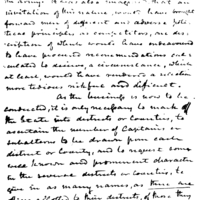 an army. It is also imagined that an
invitation of this nature, would have brought
forward men of different and adverse poli-
tical principles, as competitors, one des-
cription of whom would have endeavored
to have procured recommendations cal-
culated to deceive, a circumstance, which
at least, would have rendered a selection
more tedious and difficult.
As the business is now to be
conducted, it is only necessary to mark off
the State into districts or Counties, to
ascertain the number of Captains &
subalterns to be drawn from each
district or County, and to request some
well known and prominent character
in the several districts or Counties, to
give in as many names, as there are
allotted to their districts, of those they